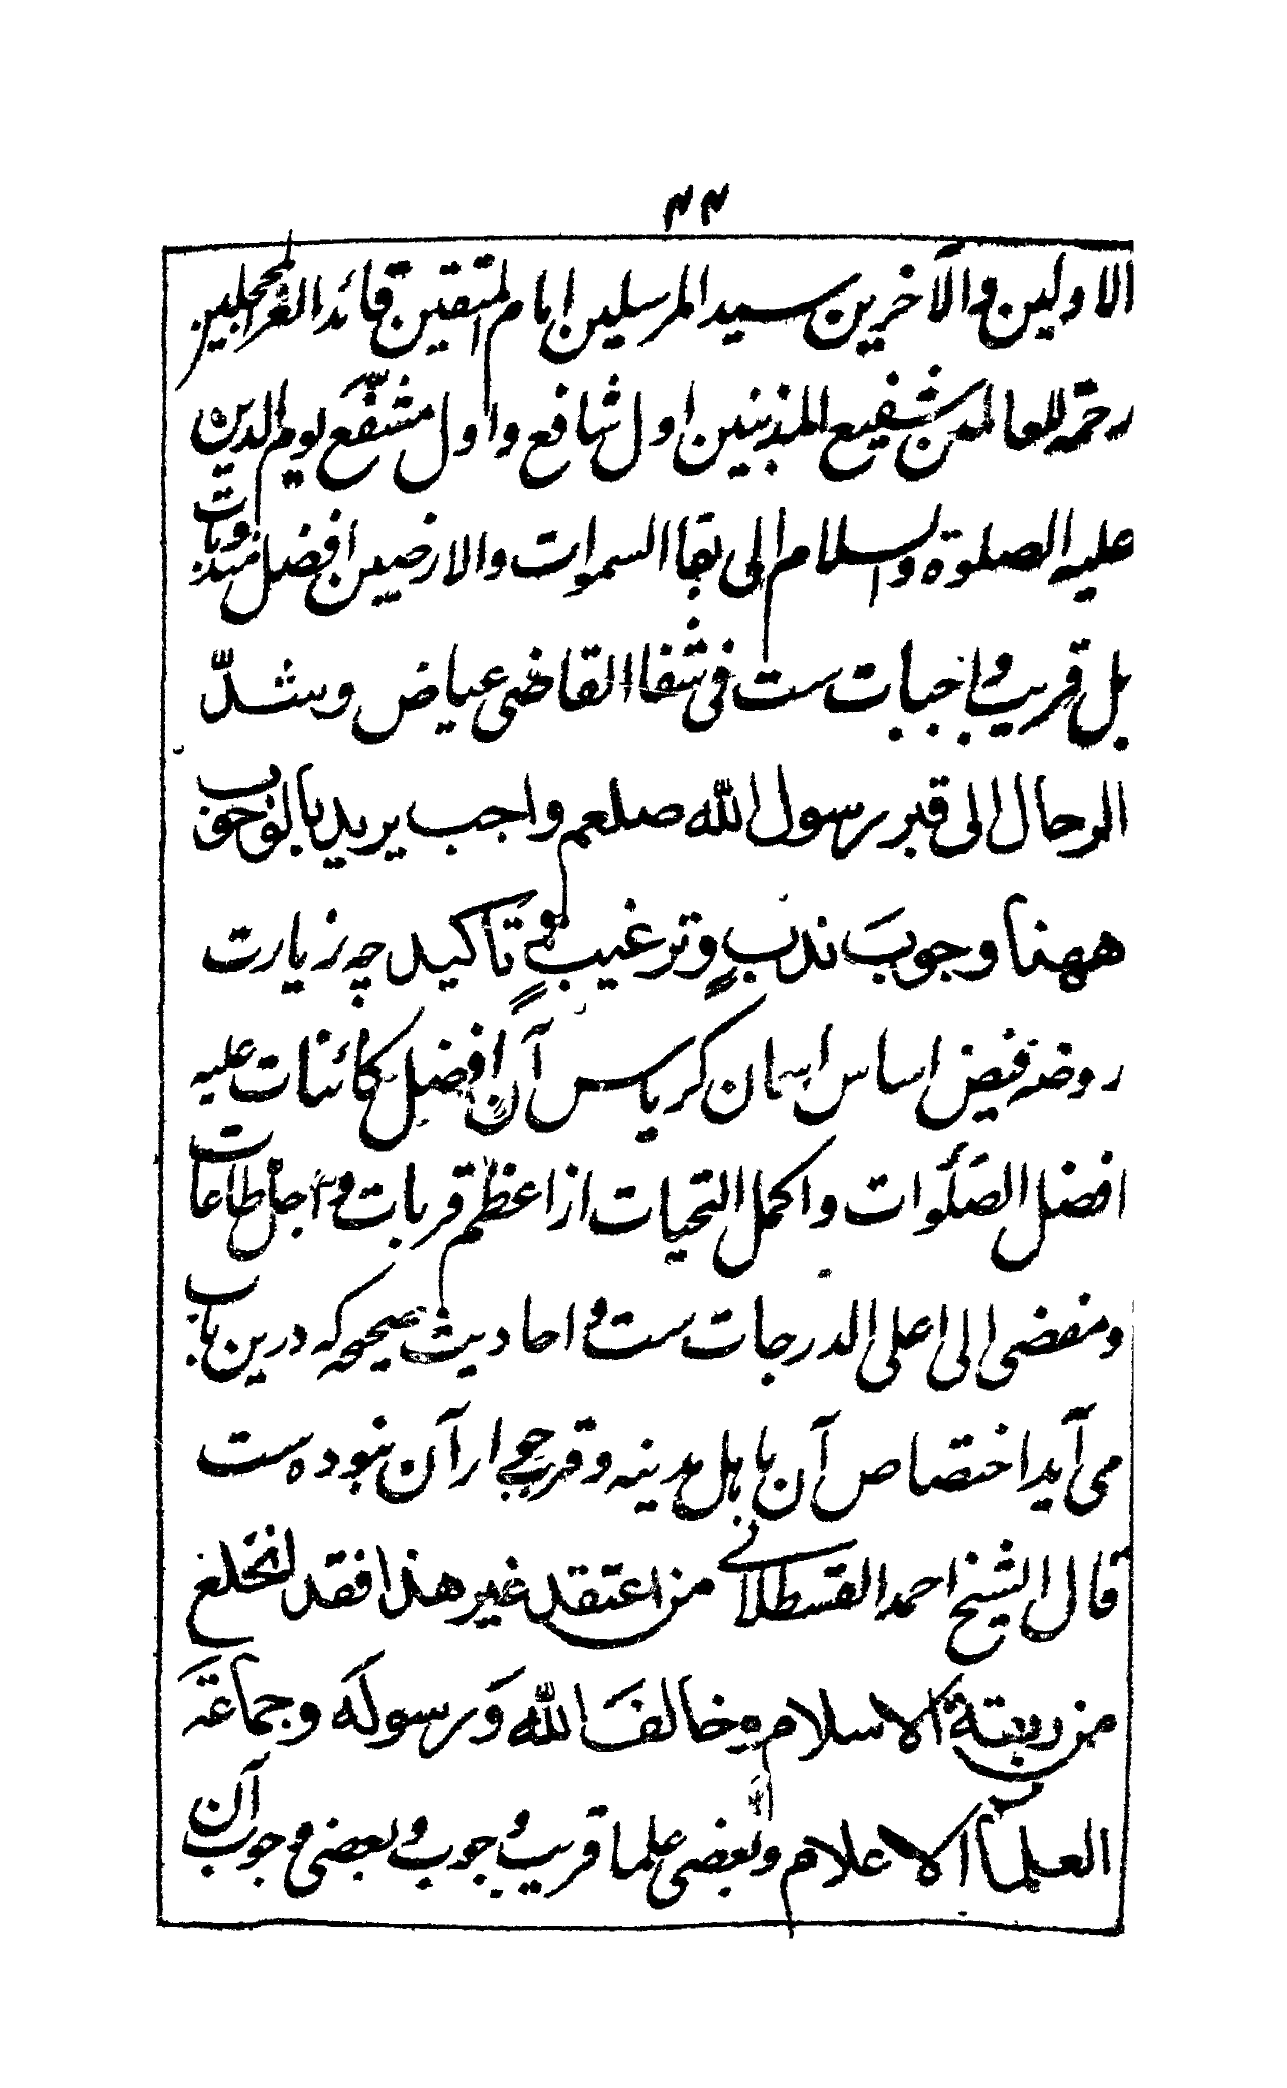 ۴۴
الاولین والآخرین سید المرسلین امام المتقین قائد الغر المحجلین
رحمة للعالمین شفیع المذنبین اول شافع واول مشفّع یوم الدین
علیه الصلوة والسلام الی بقاا السموات والارضین افضل مندوبات
بل قریب واجبات ست فی شفاا القاضی عیاض وشدّ
الرحال الی قبر رسول الله صلعم واجب یرید بالوجوب
ههنا وجوبَ ندبٍ وترغیبٍ وتاکید چه زیارت
روضه فیض اساس اسمان کریاس آن افضل کائنات علیه
افضل الصلَوات واکمل التحیات از اعظم قربات و اجل طاعات
ومفضی الی اعلی الدرجات ست و احادیث صحیحه که درین باب
می آید اختصاص آن باهل مدینه وقرب وجوار آن نبوده ست
قال الشیخ احمد القسطلانی من اعتقد غیر هذا فقد انخلع
من ربقة الاسلام وخالفَ اللهَ وَرسولَهَ وجماعةَ
العلماءِ الاعلام وبعضی علما قریب وجوب و بعضی وجوب آن